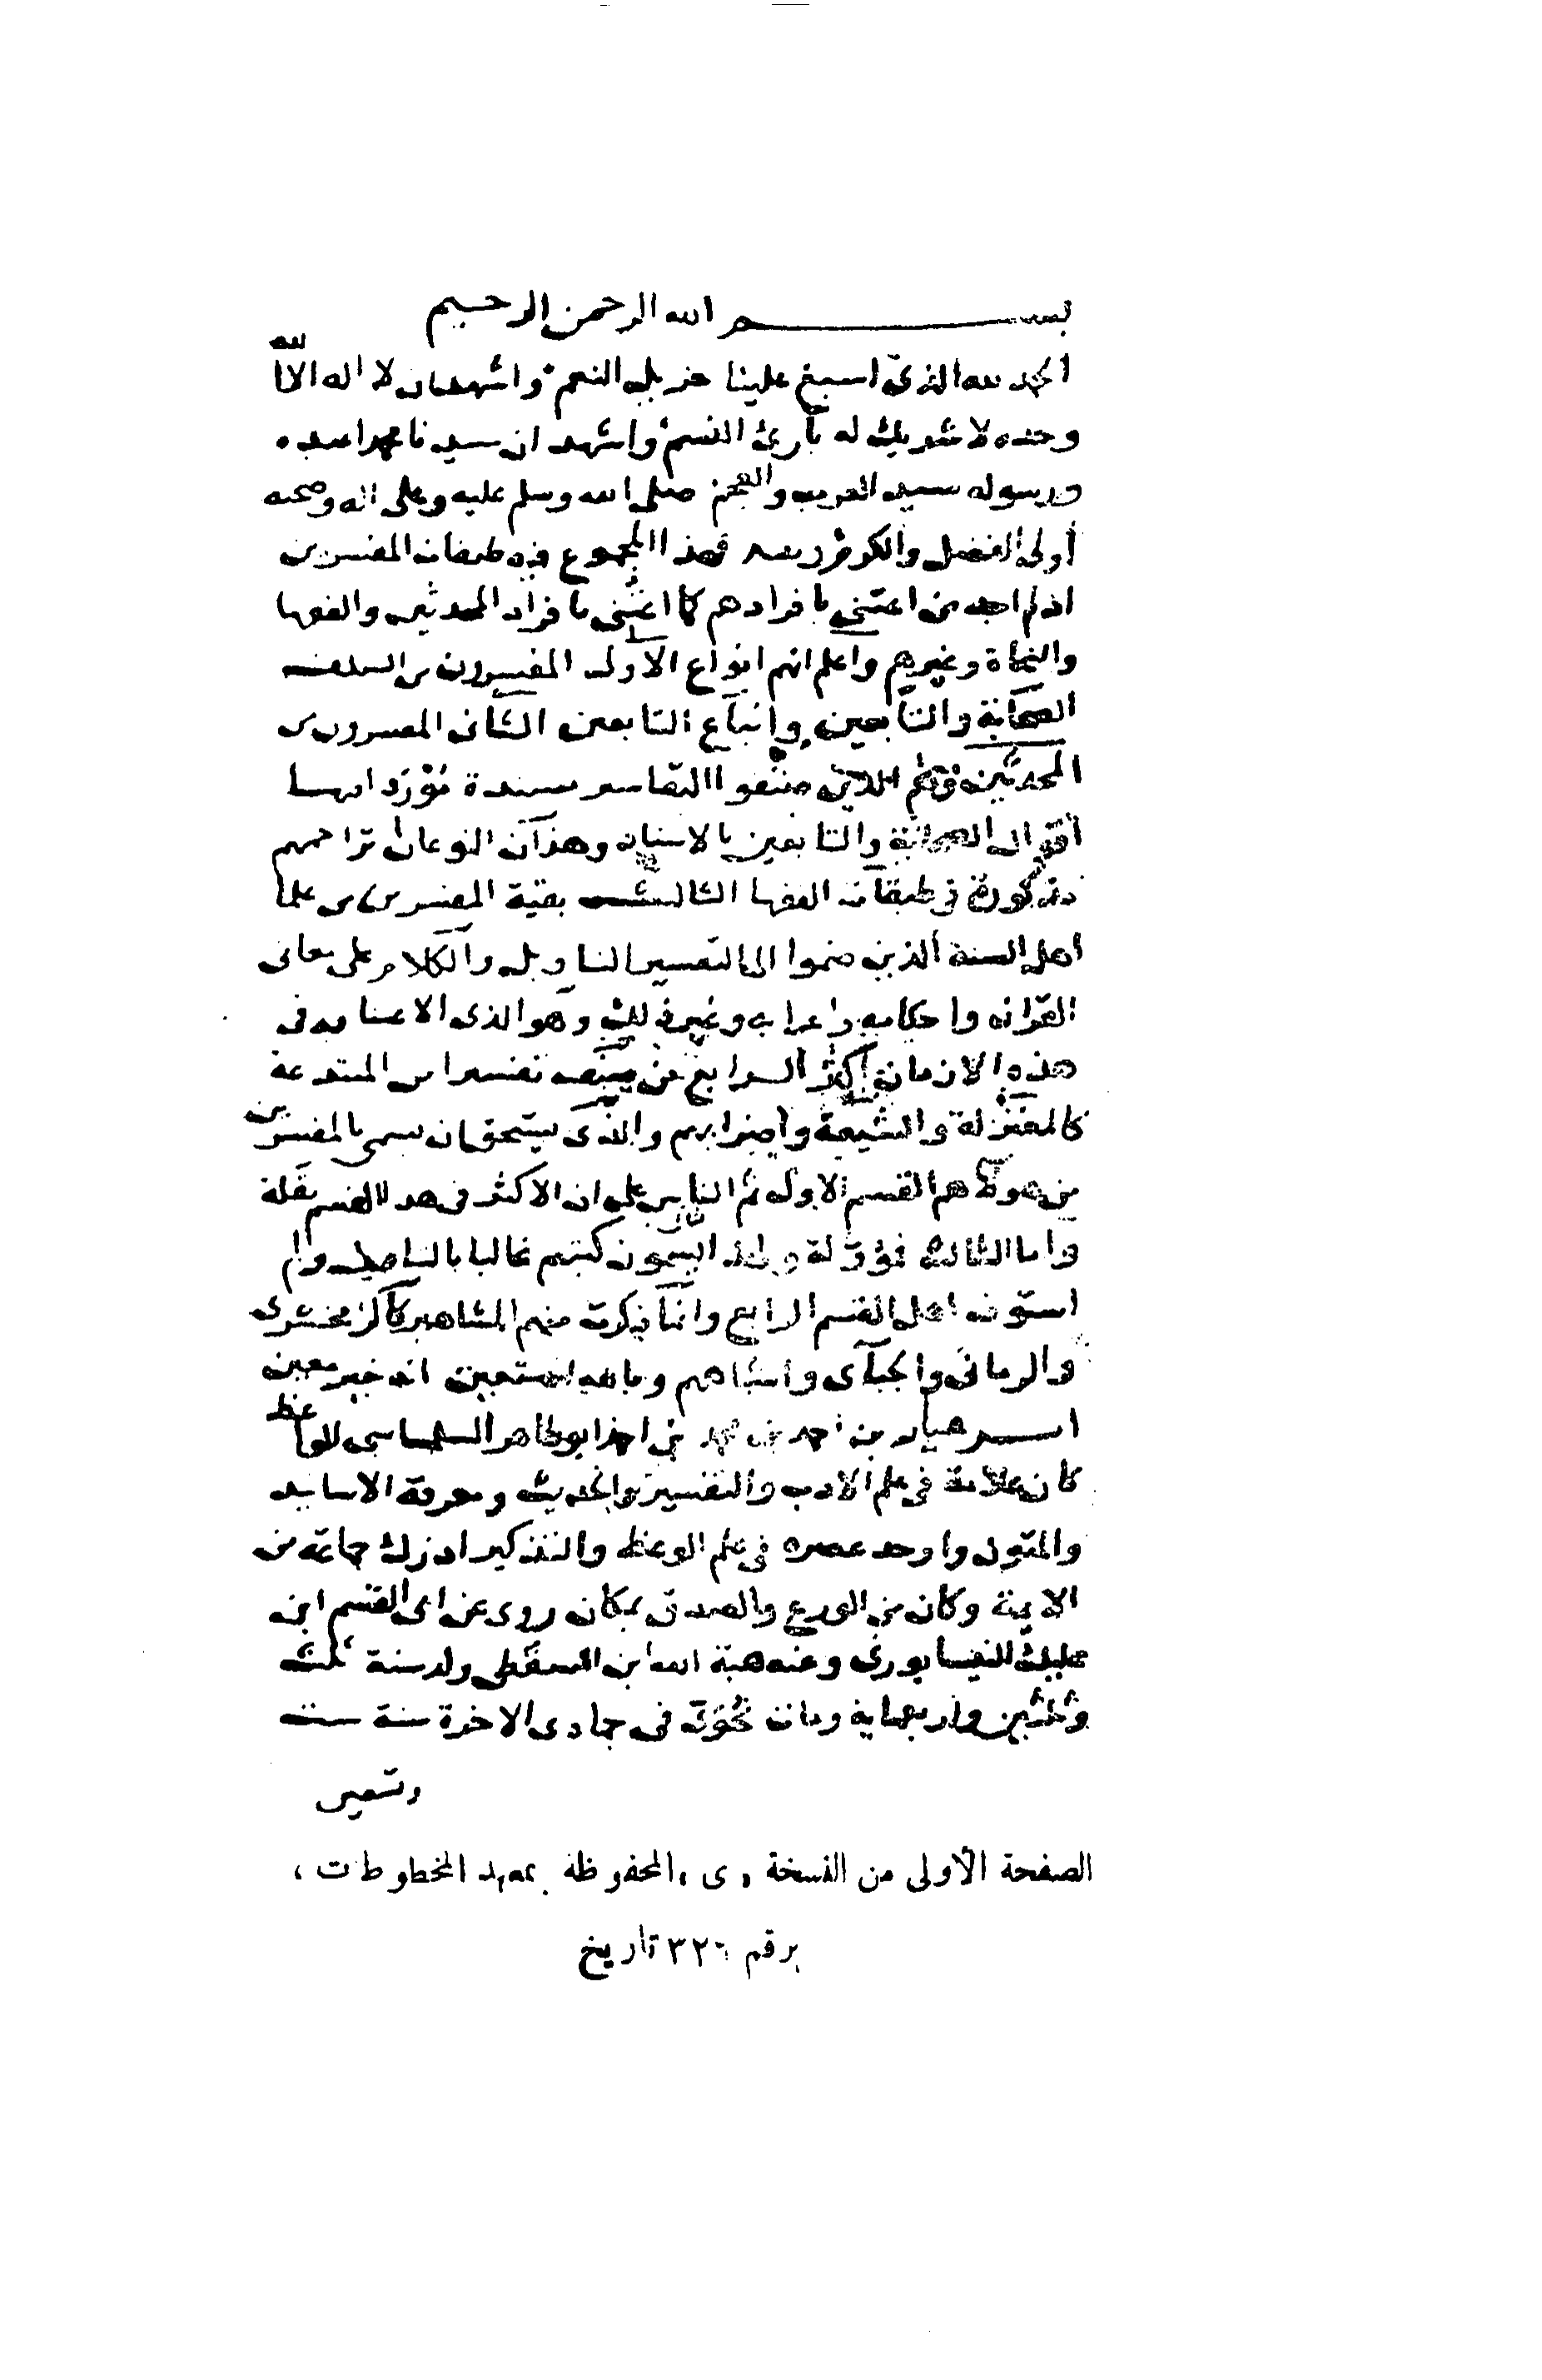 بسم الله الرحمن الرحيم
الحمد لله الذى اسبغ علينا جزيل النعم واشهد ان لا اله الا الله
وحده لا شريك له بارئ النسم واشهد ان سيدنا محمدا عبده
ورسوله سيد العرب والعجم صلى الله وسلم عليه وعلى اله وصحبه
أولى الفضل والكرم وبعد فهذا المجموع فيه طبقات المفسرين
اذ لم اجد من اعتنى بافرادهم كما اعتنى بافراد المحدثين والفقها
والنحاة وغيرهم واعلم انهم انواع الاول المفسرون من السلف
الصحابة والتابعين واتباع التابعين الثانى المفسرون من
المحدثين وهم الذين صنفوا التفاسير مسندة مورد ا فيها
أقوال الصحابة والتابعين بالاسناد وهذان النوعان تراجمهم
مذكورة فى طبقات الفقها الثالث بقية المفسرين من علما
اهل السنة الذين ضموا الى التفسير التاويل والكلام على معانى
القرانه واحكامه واعرابه وغير ذلك وهو الذى الاعتنا به فى
هذه الازمان اكثر الرابع من صنف تفسيرا من المبتدعة
كالمعتزلة والشيعة واضرابهم والذى يستحق ان يسمى بالمفسرين
من هولآ هم القسم الاول ثم الثانى على ان الاكثر فى هذا القسم نقلة
واما الثالث فمؤولة ولهذا يسمون كتبهم غالبا بالتاويل ولم
استوف اهل القسم الرابع وانما ذكرت منهم المشاهير كالزمخشرى
والرمانى والجبآى واشباههم وبالله استعين انه خير معين
ابرهيم بن احمد بن محمد بن احمد ابو طاهر السلماسى الواعظ
كان علامة فى علم الادب والتفسير والحديث ومعرفة الاسانيد
والمتون واوحد عصره فى علم الوعظ والتذكير ادرك جماعة من
الايمة وكان من الورع والصدق بمكان روى عن ابى القسم ابن
عليك النيسابورى وعنه هبة الله ابن السقطى ولد سنة ثلث
وثلثين واربعماية ومات بخوى فى جمادى الاخرة سنة ست
وتسعين
الصفحة الأولى من النسخة « ى » المحفوظة بمعهد المخطوطات ،
برقم ٣٢٦ تاريخ